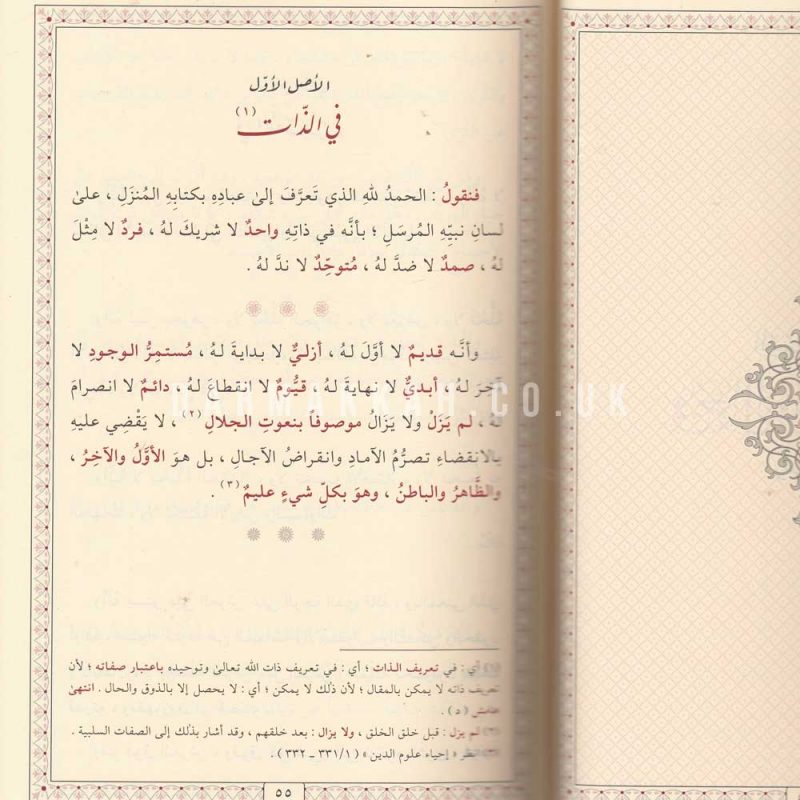 الأصل الأوّل
في الذّات (١)
فنقولُ : الحمدُ للهِ الذي تَعرَّفَ إلىٰ عبادِهِ بكتابِهِ المُنزَلِ ، علىٰ
لسانِ نبيِّهِ المُرسَلِ ؛ بأنَّه في ذاتِهِ واحدٌ لا شريكَ لهُ ، فردٌ لا مِثْلَ
لهُ ، صمدٌ لا ضدَّ لهُ ، مُتوحِّدٌ لا ندَّ لهُ .
وأنَّه قديمٌ لا أوَّلَ لهُ ، أزليٌّ لا بدايةَ لهُ ، مُستمِرُّ الوجودِ لا
آخِرَ لهُ ، أبديٌّ لا نهايةَ لهُ ، قيُّومٌ لا انقطاعَ لهُ ، دائمٌ لا انصرامَ
لهُ ، لم يَزَلْ ولا يَزَالُ موصوفاً بنعوتِ الجلالِ (٢) ، لا يَقْضِي عليهِ
بالانقضاءِ تصرُّمُ الآمادِ وانقراضُ الآجالِ ، بل هوَ الأوَّلُ والآخِرُ ،
والظَّاهرُ والباطنُ ، وهوَ بكلِّ شيءٍ عليمٌ (٣) .
DARMANKAH.CO.UK
(١) أي : في تعريف الذات ؛ أي : في تعريف ذات الله تعالىٰ وتوحيده باعتبار صفاته ؛ لأن
تعريف ذاته لا يمكن بالمقال ؛ لأن ذٰلك لا يمكن ؛ أي : لا يحصل إلا بالذوق والحال . انتهىٰ
هامش ( د ) .
(٢) لم يزل : قبل خلق الخلق ، ولا يزال : بعد خلقهم ، وقد أشار بذٰلك إلى الصفات السلبية .
(٣) انظر « إحياء علوم الدين » ( ٣٣١/١ ـ ٣٣٢ ) .
٥٥